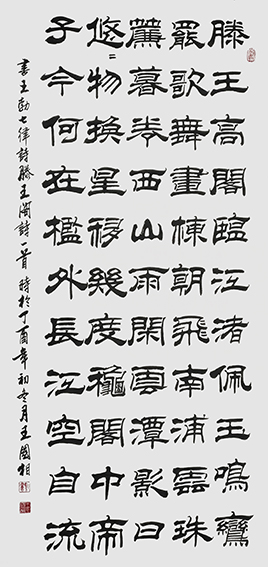 滕王高閣臨江渚佩玉鳴鸞
罷歌舞畫棟朝飛南浦雲珠
簾暮卷西山雨閑雲潭影日
悠〻物換星移幾度龝閣中帝
子今何在檻外長江空自流
書王勃七律詩滕王閣詩一首 時於丁酉年初冬月王國相